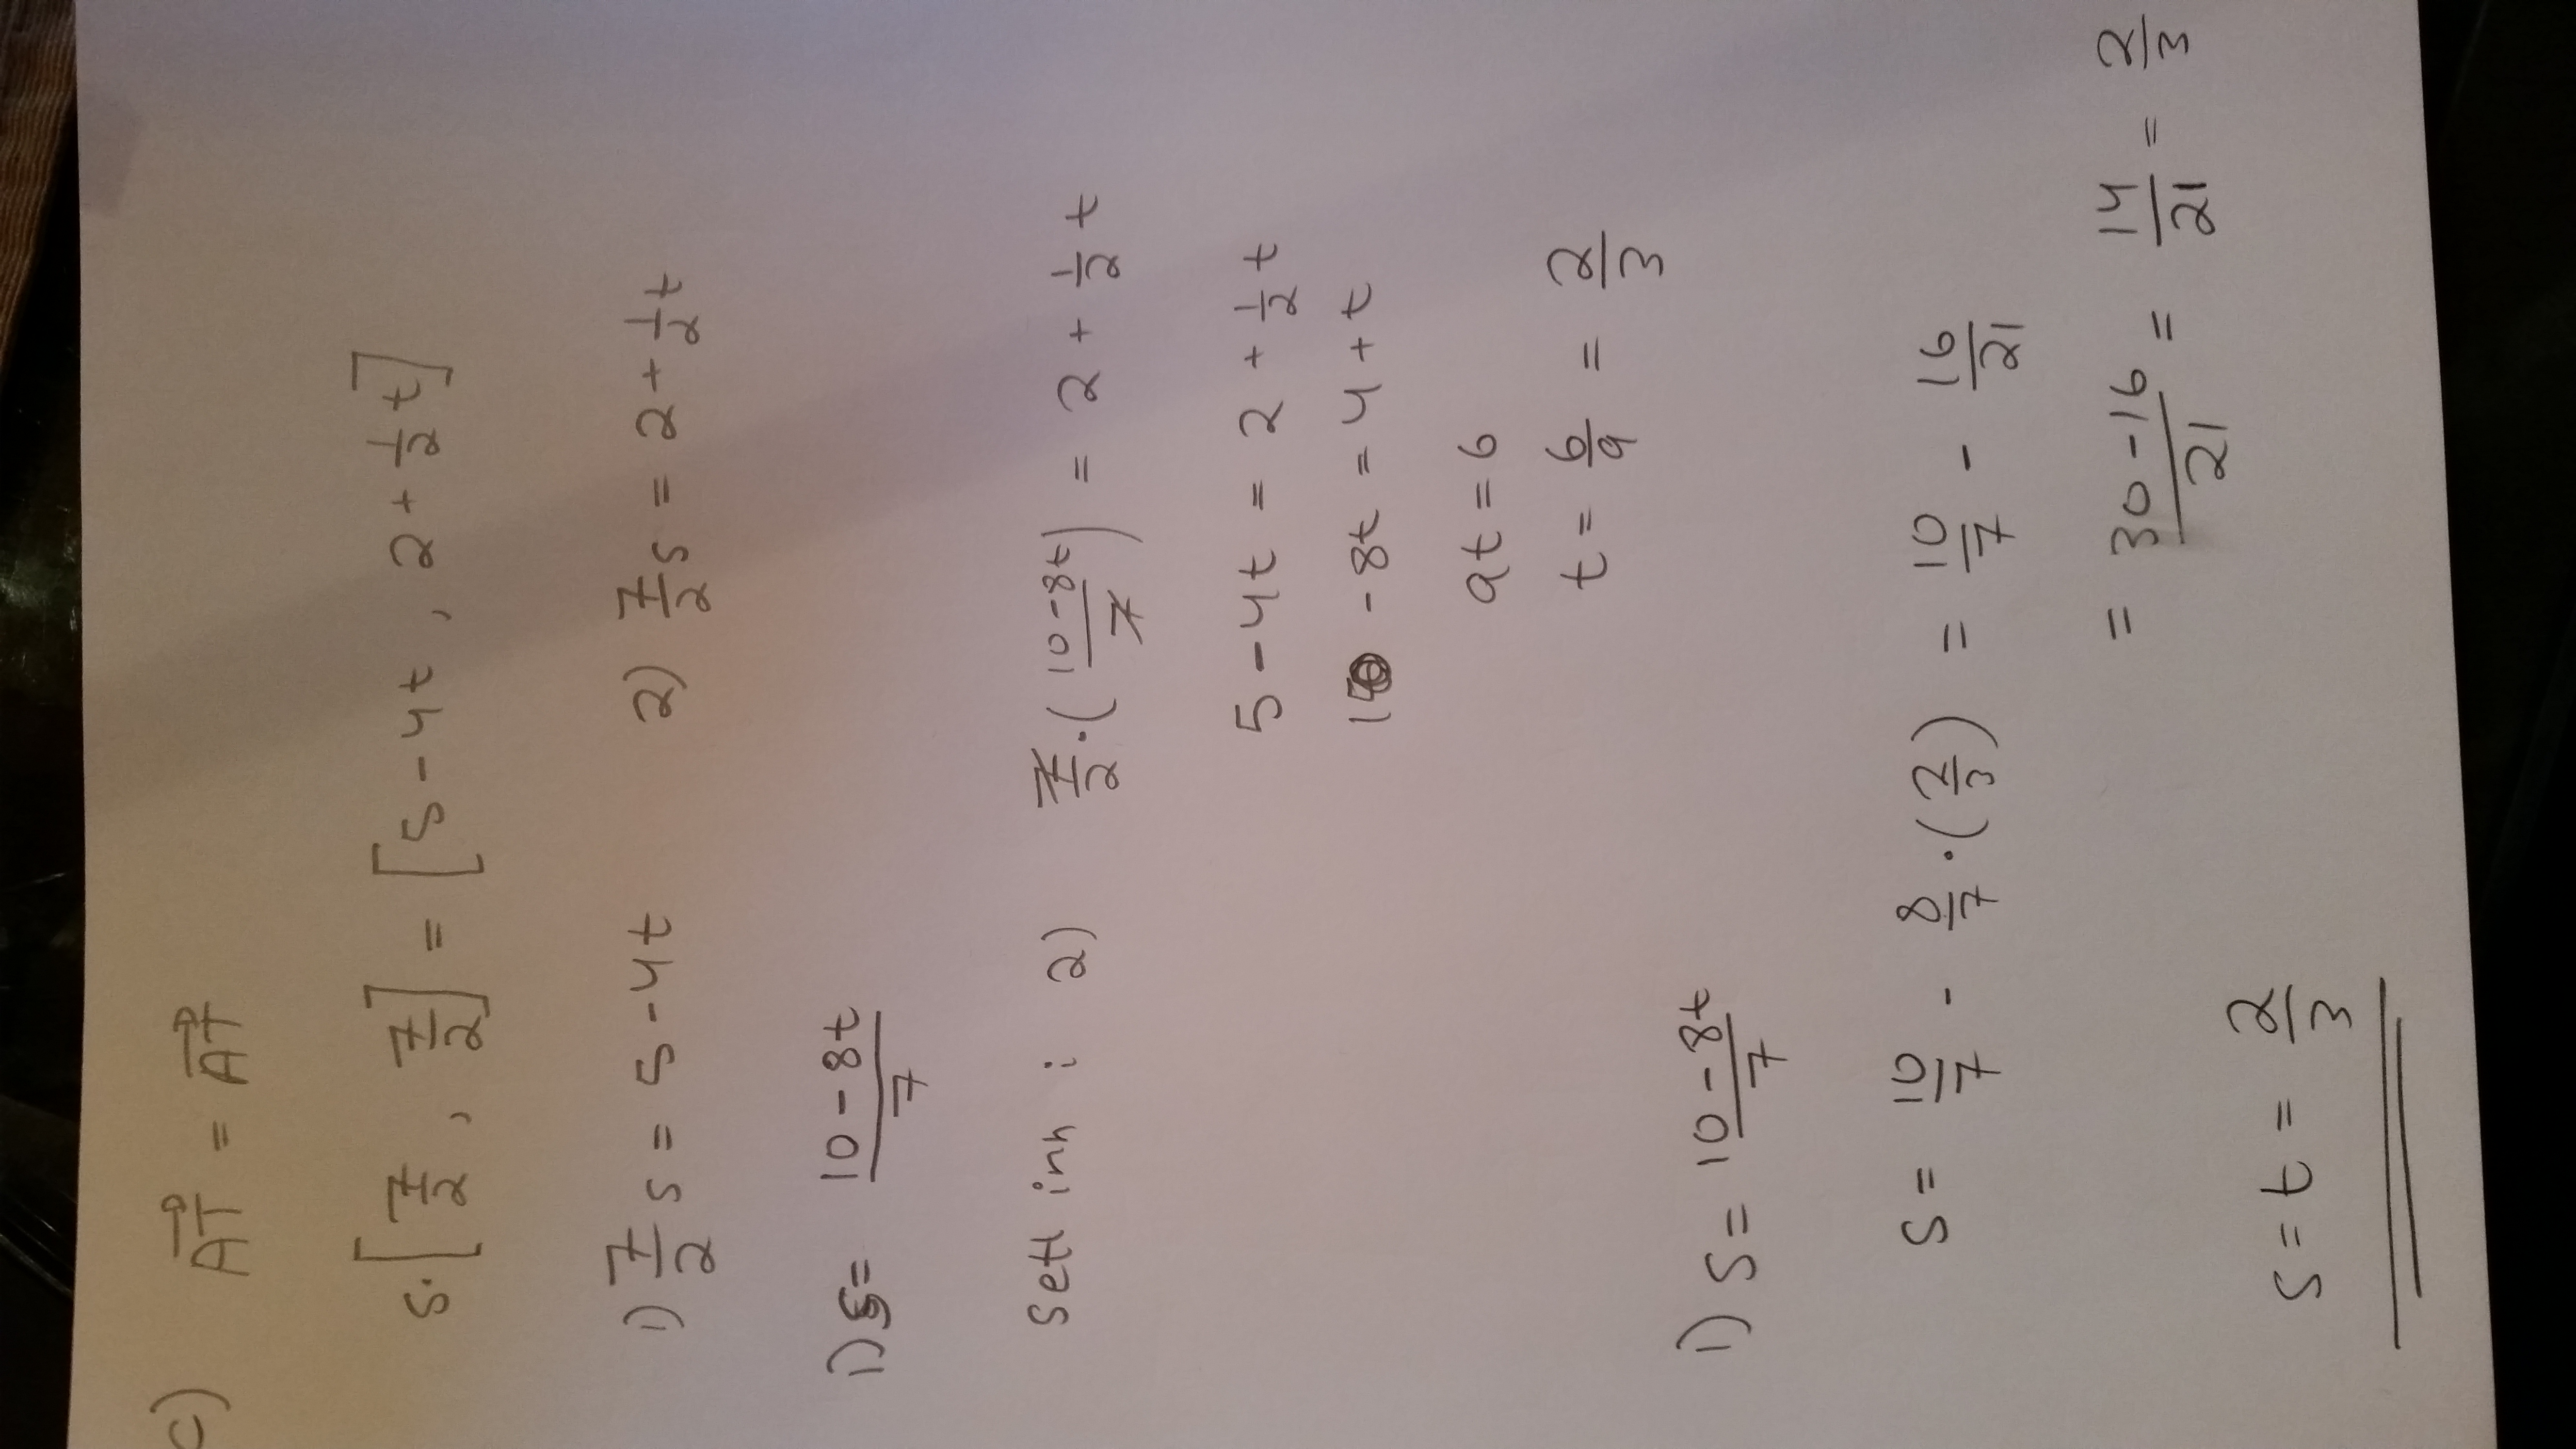 c) A⃗T = A⃗T
s·[7/2 , 7/2] = [5-4t , 2+1/2t]
1) 7/2 s = 5-4t 2) 7/2 s = 2+1/2t
1) s = 10-8t/7
sett inn i 2) 7/2·(10-8t/7) = 2+1/2t
5-4t = 2+1/2t
10-8t = 4+t
9t=6
t= 6/9 = 2/3
1) s= 10-8t/7
s= 10/7 - 8/7·(2/3) = 10/7 - 16/21
= 30-16/21 = 14/21 = 2/3
s=t= 2/3